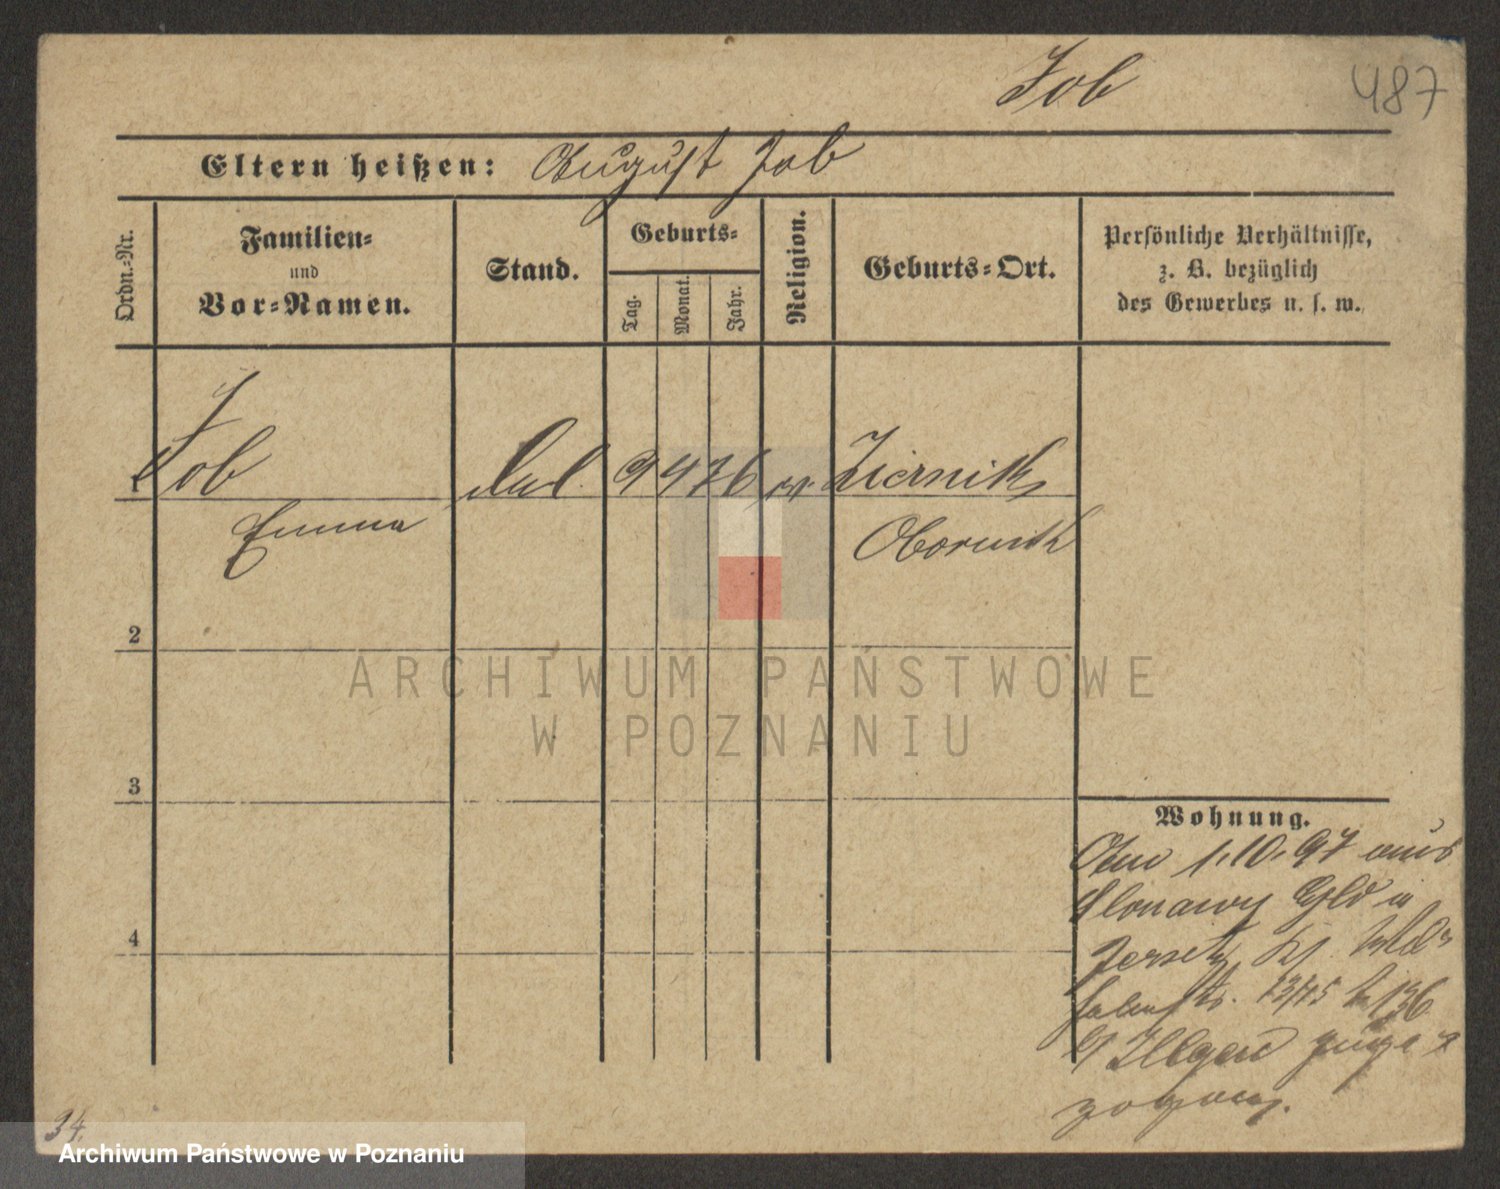 Job
487
Eltern heißen: August Job
Ordn.-Nr.
Familien-
und
Vor-Namen.
Stand.
Geburts-
Tag.
Monat.
Jahr.
Religion.
Geburts-Ort.
Persönliche Verhältnisse,
z. B. bezüglich
des Gewerbes u. s. w.
1 Job led. 9 4 76 ev. Ziernik,
Emma Obornik
2
3
4
Wohnung.
1.10.97 aus
Slonawy
Jersitz,
23/25
Illgen
zogen.
34.
ARCHIWUM PAŃSTWOWE
W POZNANIU
Archiwum Państwowe w Poznaniu